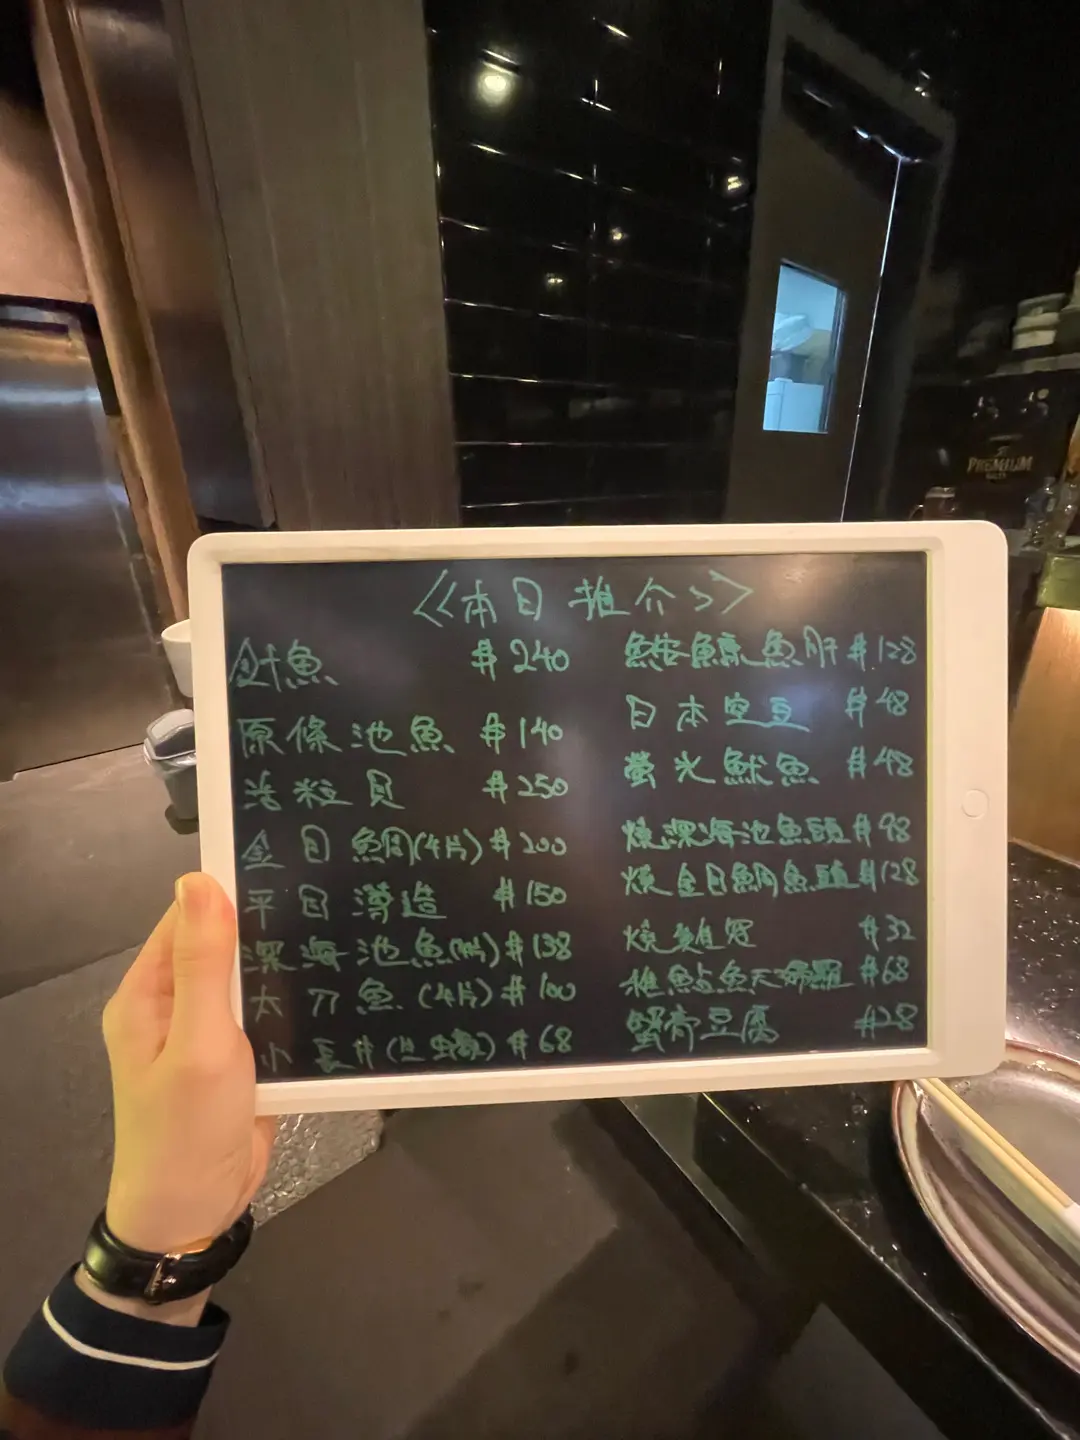 《本日推介》
魚 $240
原條池魚 $140
活粒貝 $250
金目鯛(4片) $200
平目薄造 $150
深海池魚 $138
太刀魚(4片) $100
小長井 $68
魚肝 $128
日本空豆 $48
螢光魷魚 $48
燒深海池魚頭 $98
燒金目鯛魚頭 $128
燒 $32
魚天婦羅 $68
蟹膏豆腐 $28
PREMIUM